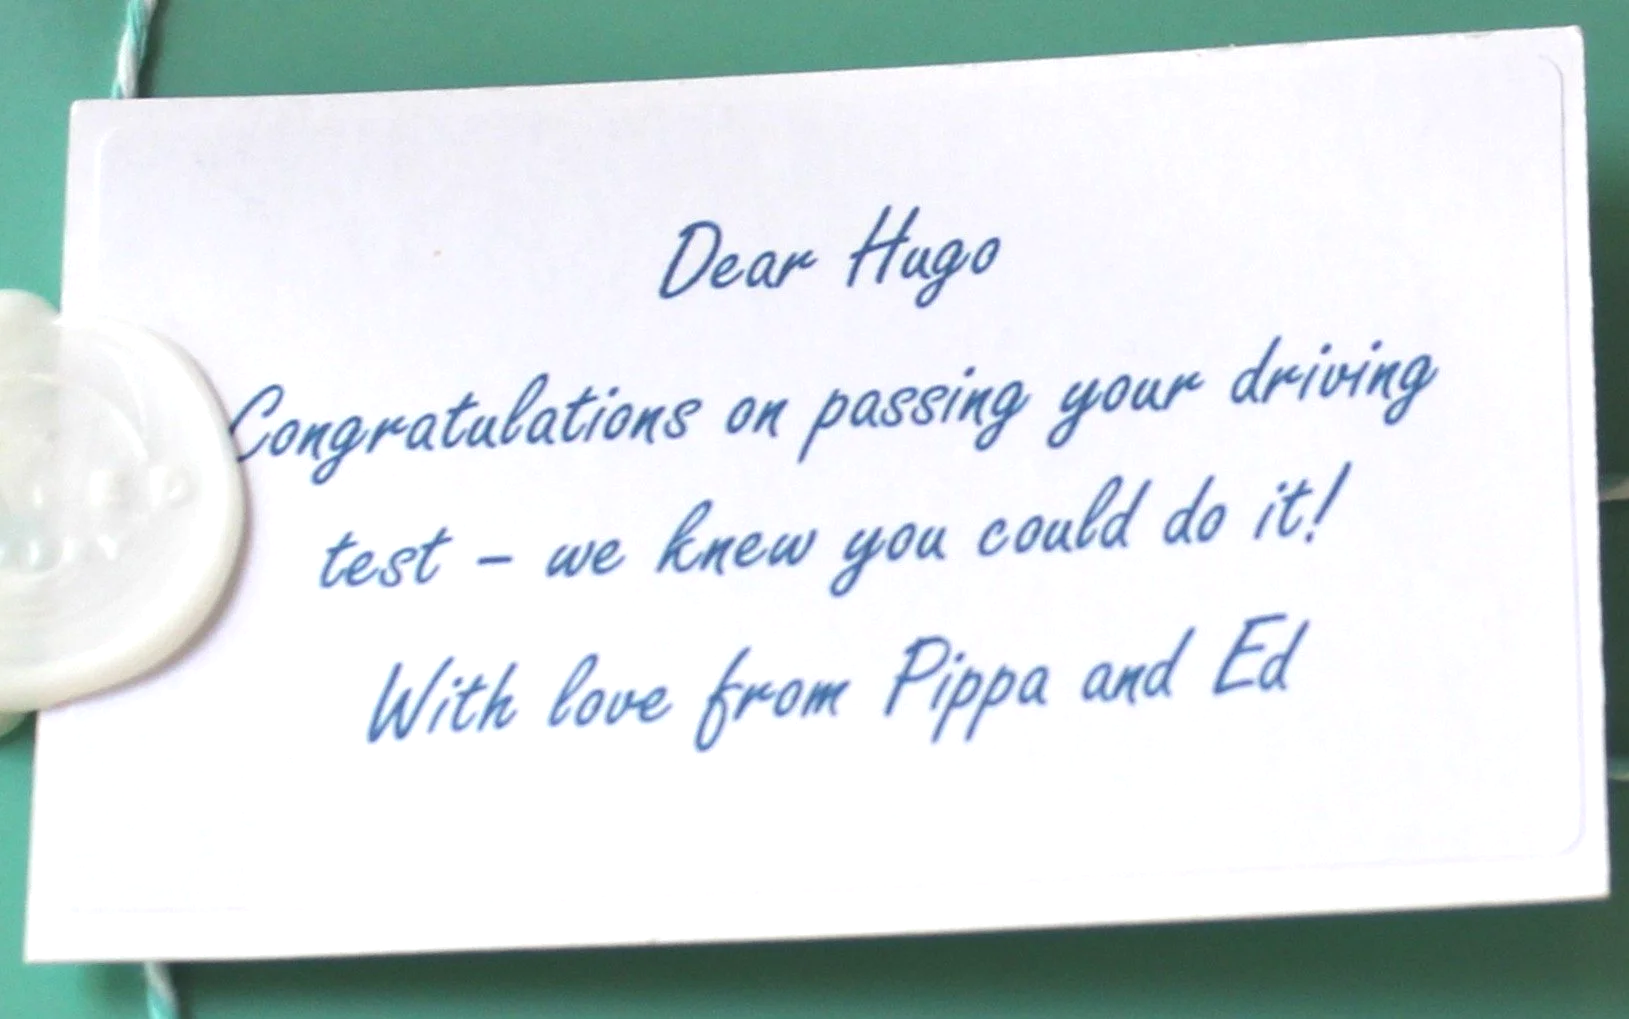 Dear Hugo
Congratulations on passing your driving
test – we knew you could do it!
With love from Pippa and Ed